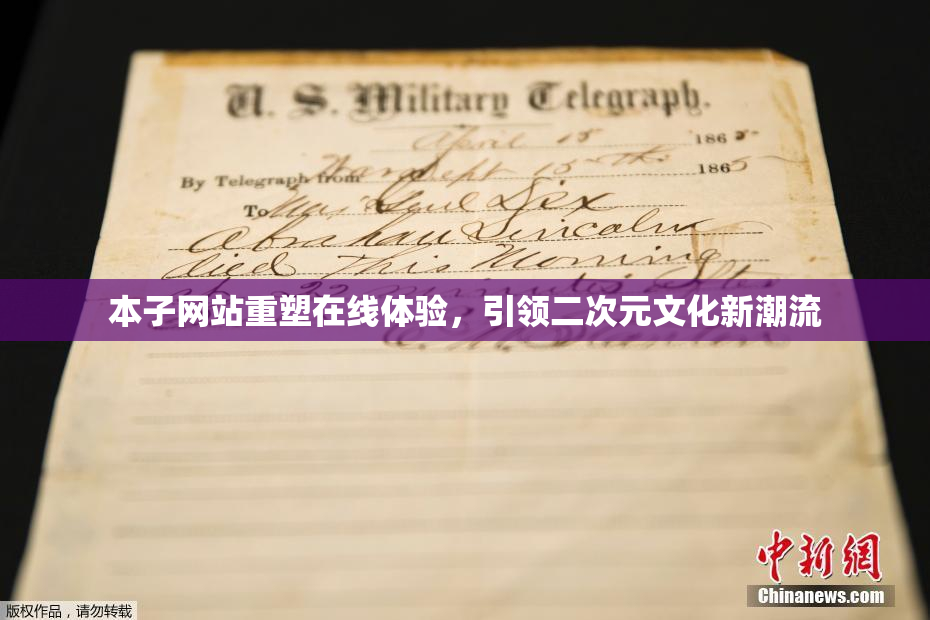 U. S. Military Telegraph.
April 15 1865
By Telegraph from War Dept 15th 1865
To Maj Genl Dix
Abraham Lincoln
died This Morning
at 22 minutes after
本子网站重塑在线体验，引领二次元文化新潮流
E. M. Stanton
中新网
版权作品，请勿转载
Chinanews.com